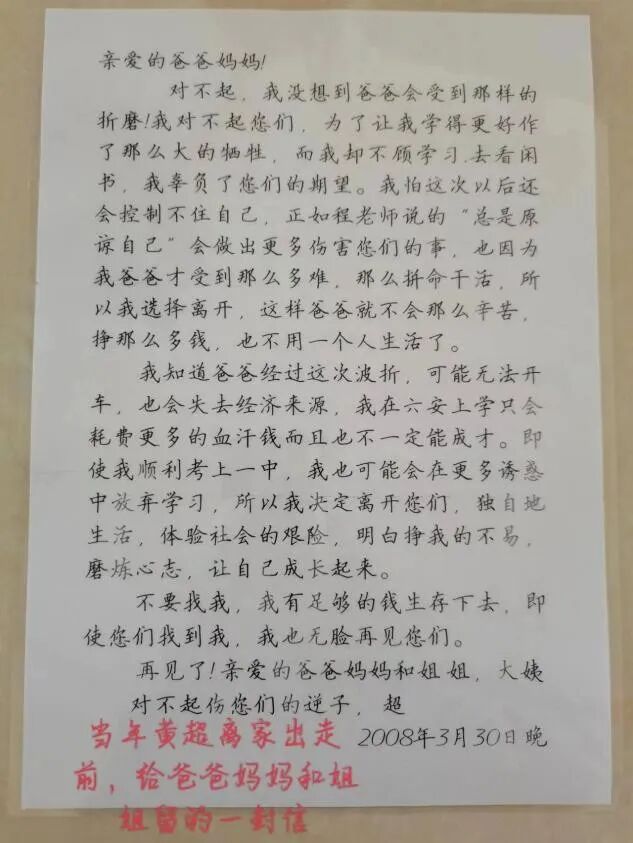 亲爱的爸爸妈妈！
对不起，我没想到爸爸会受到那样的
折磨！我对不起您们，为了让我学得更好作
了那么大的牺牲，而我却不顾学习.去看闲
书，我辜负了您们的期望。我怕这次以后还
会控制不住自己，正如程老师说的“总是原
谅自己”会做出更多伤害您们的事，也因为
我爸爸才受到那么多难，那么拼命干活，所
以我选择离开，这样爸爸就不会那么辛苦，
挣那么多钱，也不用一个人生活了。
我知道爸爸经过这次波折，可能无法开
车，也会失去经济来源，我在六安上学只会
耗费更多的血汗钱而且也不一定能成才。即
使我顺利考上一中，我也可能会在更多诱惑
中放弃学习，所以我决定离开您们，独自地
生活，体验社会的艰险，明白挣我的不易，
磨炼心志，让自己成长起来。
不要找我，我有足够的钱生存下去，即
使您们找到我，我也无脸再见您们。
再见了！亲爱的爸爸妈妈和姐姐，大姨
对不起伤您们的逆子，超
2008年3月30日晚
当年黄超离家出走
前，给爸爸妈妈和姐
姐留的一封信